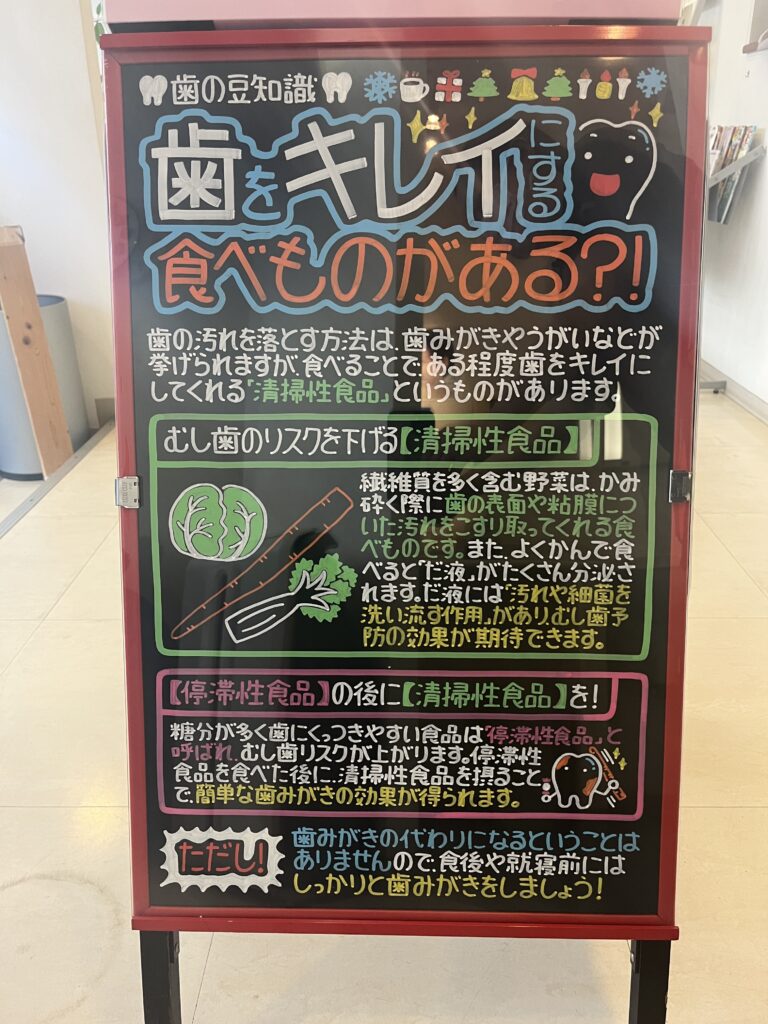 歯の豆知識
歯をキレイにする
食べものがある?!
歯の汚れを落とす方法は、歯みがきやうがいなどが
挙げられますが、食べることで、ある程度歯をキレイに
してくれる「清掃性食品」というものがあります。
むし歯のリスクを下げる【清掃性食品】
繊維質を多く含む野菜は、かみ
砕く際に歯の表面や粘膜につ
いた汚れをこすり取ってくれる食
べものです。また、よくかんで食
べると「だ液」がたくさん分泌さ
れます。だ液には"汚れや細菌を
洗い流す作用"があり、むし歯予
防の効果が期待できます。
【停滞性食品】の後に【清掃性食品】を!
糖分が多く歯にくっつきやすい食品は「停滞性食品」と
呼ばれ、むし歯リスクが上がります。停滞性
食品を食べた後に、清掃性食品を摂ること
で、簡単な歯みがきの効果が得られます。
ただし!
歯みがきの代わりになるということは
ありませんので、食後や就寝前には
しっかりと歯みがきをしましょう!